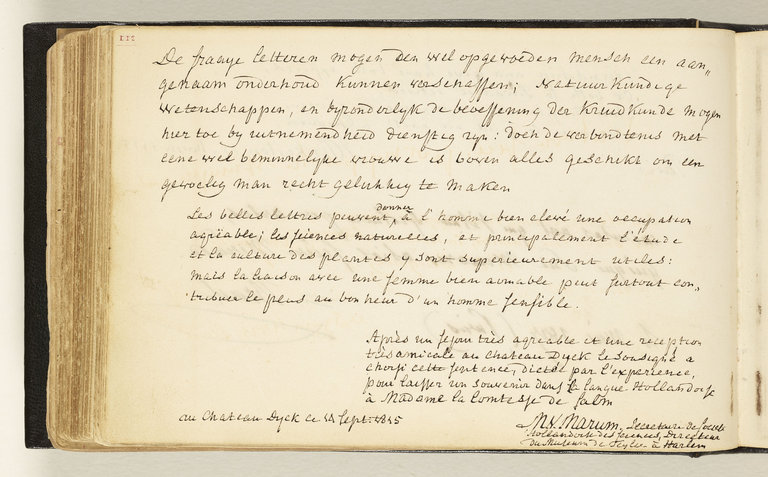 111
De fraaye letteren mogen den wel opgevoeden mensch een aan„
genaam onderhoud kunnen verschaffen; Natuurkundige
wetenschappen, en byzonderlyk de beoeffening der Kruidkunde mogen
hier toe by uitnemendheid dienstig zyn: doch de verbindtenis met
eene wel beminnelyke vrouwe is boven alles geschikt om een
gevoelig man recht gelukkig te maken
Les belles lettres peuvent, donner à l'homme bien elevé une occupation
agréable; les sciences naturelles, et principalement l'étude
et la culture des plantes y sont superieurement utiles:
mais la liaison avec une femme bien aimable peut surtout con„
tribuer le plus au bonheur d'un homme sensible.
Après un sejour très agréable et une reception
très amicale au Chateau Dyck le sousigné a
choisi cette sentence, dictée par l'experience,
pour laisser un souvenir dans la langue Hollandoise
à Madame la Comtesse de Salm
au Chateau Dyck ce Sept.
M. V. Marum. Secretaire de Societé
Hollandoise des sciences, Directeur
du Museum de Teyler à Harlem